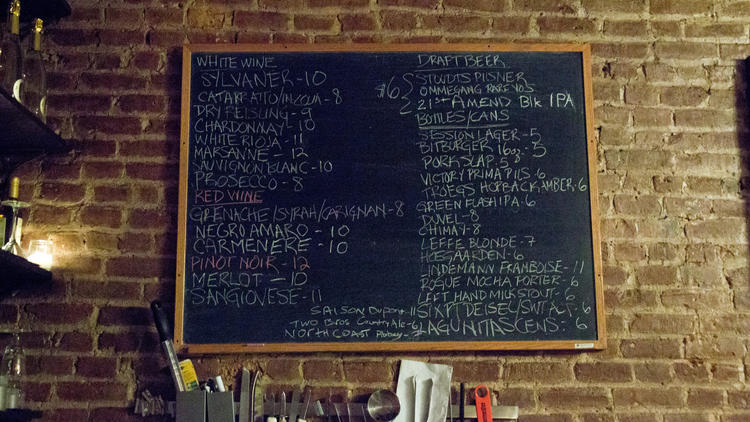 WHITE WINE
SYLVANER - 10
CATARRATTO/INZOLIA - 8
DRY REISLING - 9
CHARDONNAY - 10
WHITE RIOJA - 11
MARSANNE - 12
SAUVIGNON BLANC - 10
PROSECCO - 8
RED WINE
GRENACHE/SYRAH/CARIGNAN - 8
NEGROAMARO - 10
CARMENERE - 10
PINOT NOIR - 12
MERLOT - 10
SANGIOVESE - 11
DRAFT BEER
STOUDTS PILSNER
$6 OMMEGANG RARE VOS
21ST AMEND Blk IPA
BOTTLES/CANS
SESSION LAGER - 5
BITBURGER 16oz - 5
PORKSLAP - 5
VICTORY PRIMA PILS - 6
TROEGS HOPBACK AMBER - 6
GREEN FLASH IPA - 6
DUVEL - 8
CHIMAY - 8
LEFFE BLONDE - 7
HOEGAARDEN - 6
LINDEMANN FRAMBOISE - 11
ROGUE MOCHA PORTER - 6
LEFT HAND MILK STOUT - 6
SIXPT DEISEL/SWT ACT - 6
LAGUNITAS CENS. 6
SAISON Dupont - 11
TWO Bros Country Ale - 6
NORTH COAST Abbey - 7